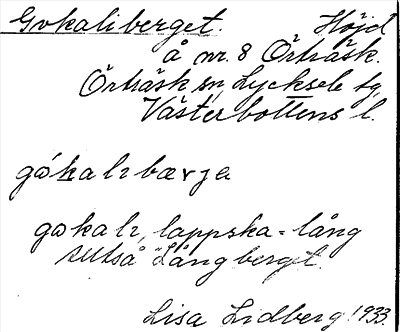 Gokaliberget. Höjd
å nr. 8 Örträsk.
Örträsk sn, Lycksele tg,
Västerbottens l.
gåkalɩbærja
gokalɩ, lappska = lång
alltså "Långberget.
Lisa Lidberg 1933.